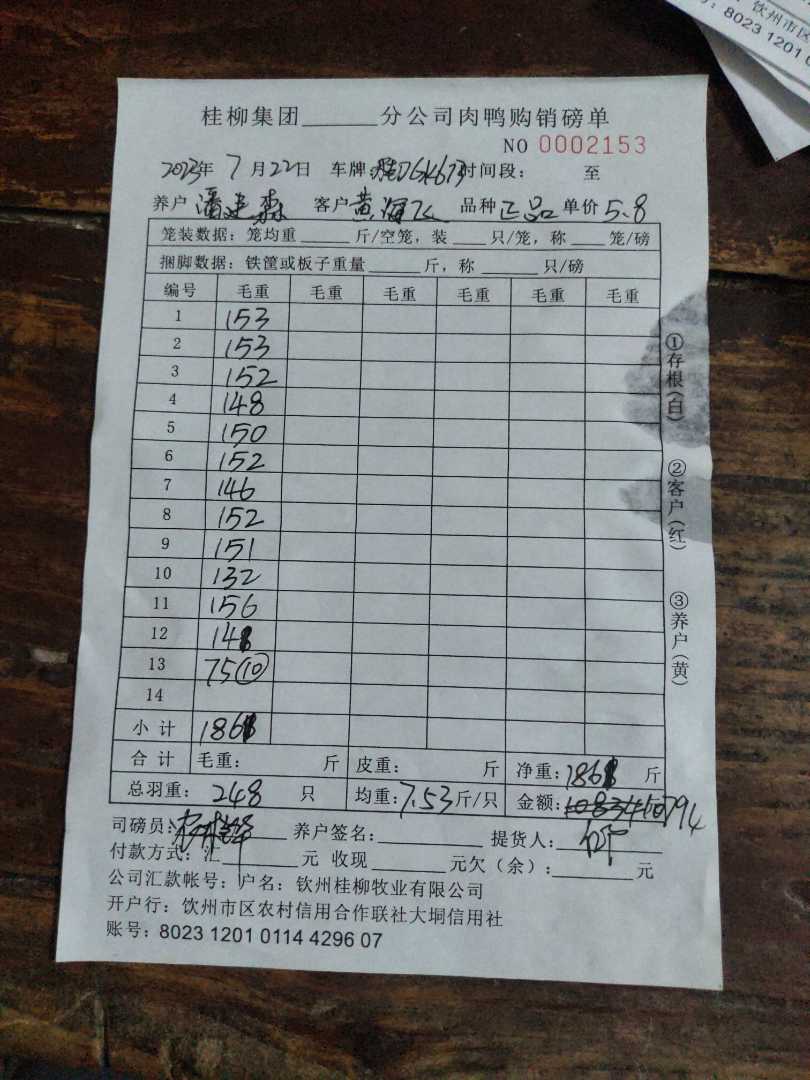 钦州市区
8023 1201 0
桂柳集团______分公司肉鸭购销磅单
NO 0002153
2023年 7月22日 车牌 时间段： 至
养户 潘建森 客户 黄海飞 品种 正品 单价 5.8
笼装数据：笼均重____斤/空笼，装___只/笼，称___笼/磅
捆脚数据：铁筐或板子重量____斤，称____只/磅
编号 毛重 毛重 毛重 毛重 毛重 毛重
1 153
2 153
3 152
4 148
5 150
6 152
7 146
8 152
9 151
10 132
11 156
12 148
13 75⑩
14
小计 1868
合计 毛重： 斤 皮重： 斤 净重：1868 斤
总羽重： 248 只 均重：7.53斤/只 金额：10794
司磅员： 养户签名：______ 提货人：
付款方式：汇______元 收现______元欠（余）：______元
公司汇款帐号：户名：钦州桂柳牧业有限公司
开户行：钦州市区农村信用合作联社大垌信用社
账号：8023 1201 0114 4296 07
①存根（白）
②客户（红）
③养户（黄）